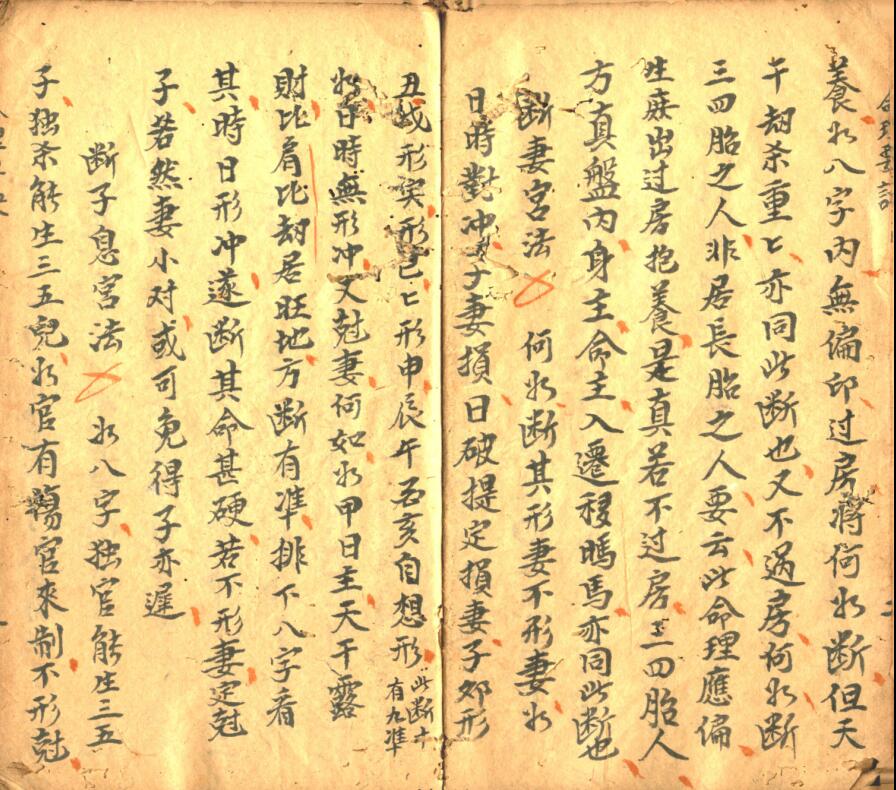 養如八字内無偏印过房將何如断但天
干劫杀重匕亦同此断也又不過房何如断
三四胎之人非居長胎之人要云此命理應偏
生庶出过房抱養是真若不过房三四胎人
方真盤内身主命主入遷移鴫馬亦同此断也
断妻宮法 何如断其形妻不形妻如
日時對冲子妻損日破提定損妻子邜形
丑戌形寅形巳匕形申辰午酉亥自想形 此断十有九準
如日時無形冲又尅妻何如如甲日主天干露
財比肩比劫居旺地方断有準排下八字看
其時日形冲遂断其命甚硬若不形妻定尅
子若然妻小对或可免得子亦遲
断子息宮法 如八字独官能生三五
子独杀能生三五兒如官有傷官來制不形尅